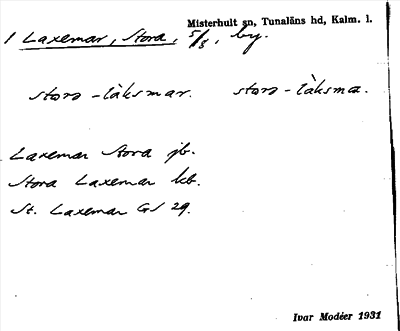 Misterhult sn, Tunaläns hd, Kalm. l.
1 Laxemar, Stora, 5/8, by.
storə-làksmar. storə-làksma.
Laxemar Stora jb.
Stora Laxemar kb.
St. Laxemar GS 29.
Ivar Modéer 1931